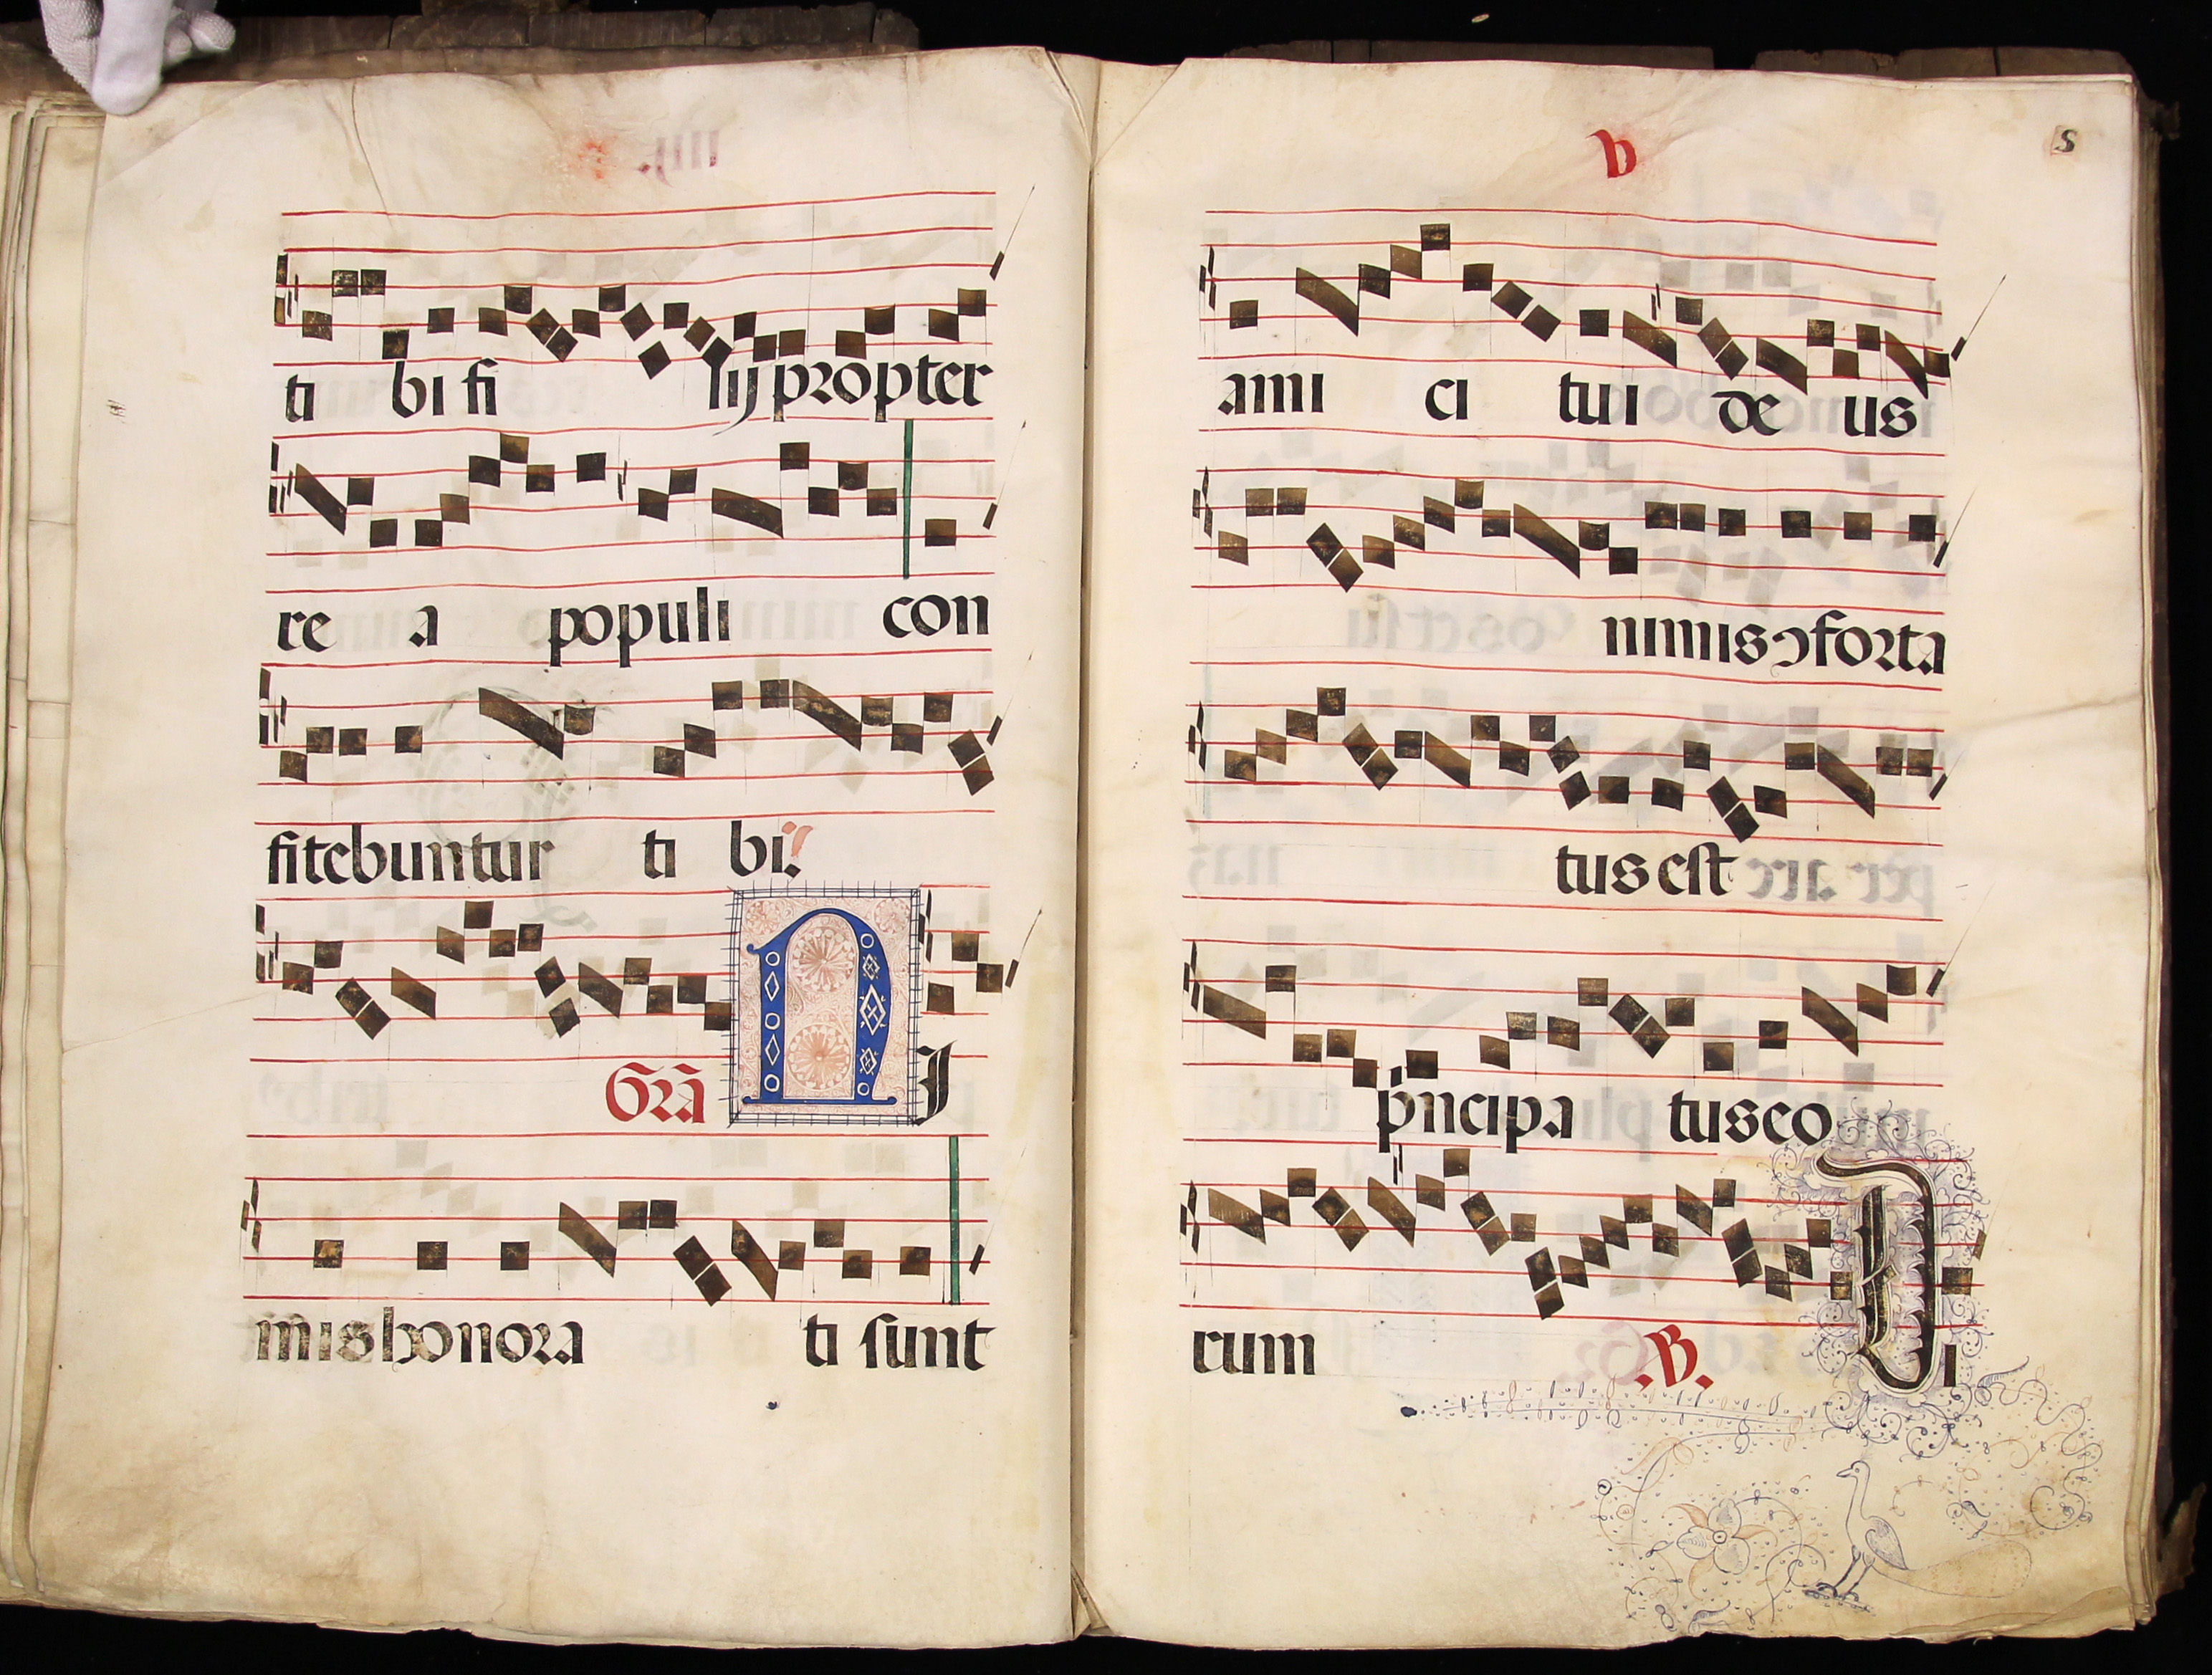 ti bi fi lij propter
re a populi con
fitebuntur ti bi.
Grã NJ
mĩs honora ti sunt
b
s
ami ci tui de us
nimis ꝯforta
tus est
p̃ncipa tus eo
rum .V. Di